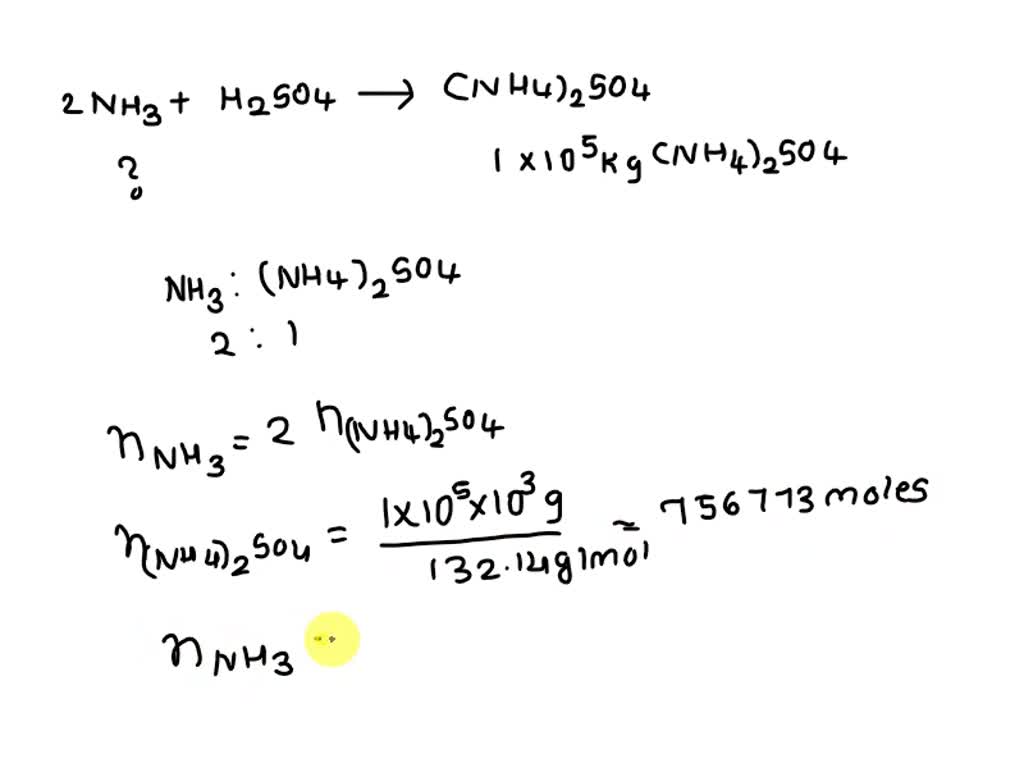 2NH3 + H2SO4 → (NH4)2SO4
? 1×10^5 kg (NH4)2SO4
NH3 : (NH4)2SO4
2 : 1
nNH3 = 2 n(NH4)2SO4
n(NH4)2SO4 = 1×10^5×10^3 g / 132.14 g/mol ≈ 756773 moles
nNH3